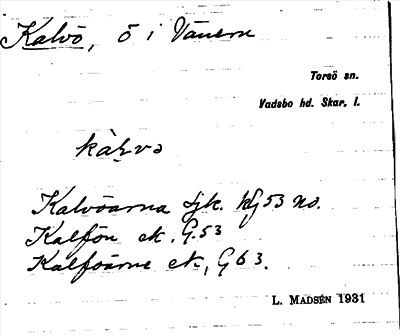 Kalvö, ö i Vänern
Torsö sn.
Vadsbo hd. Skar. l.
Kalvöarna sjk. 53 no.
Kalfön ek. G.53
Kalföarne ek, G63.
L. MADSÉN 1931